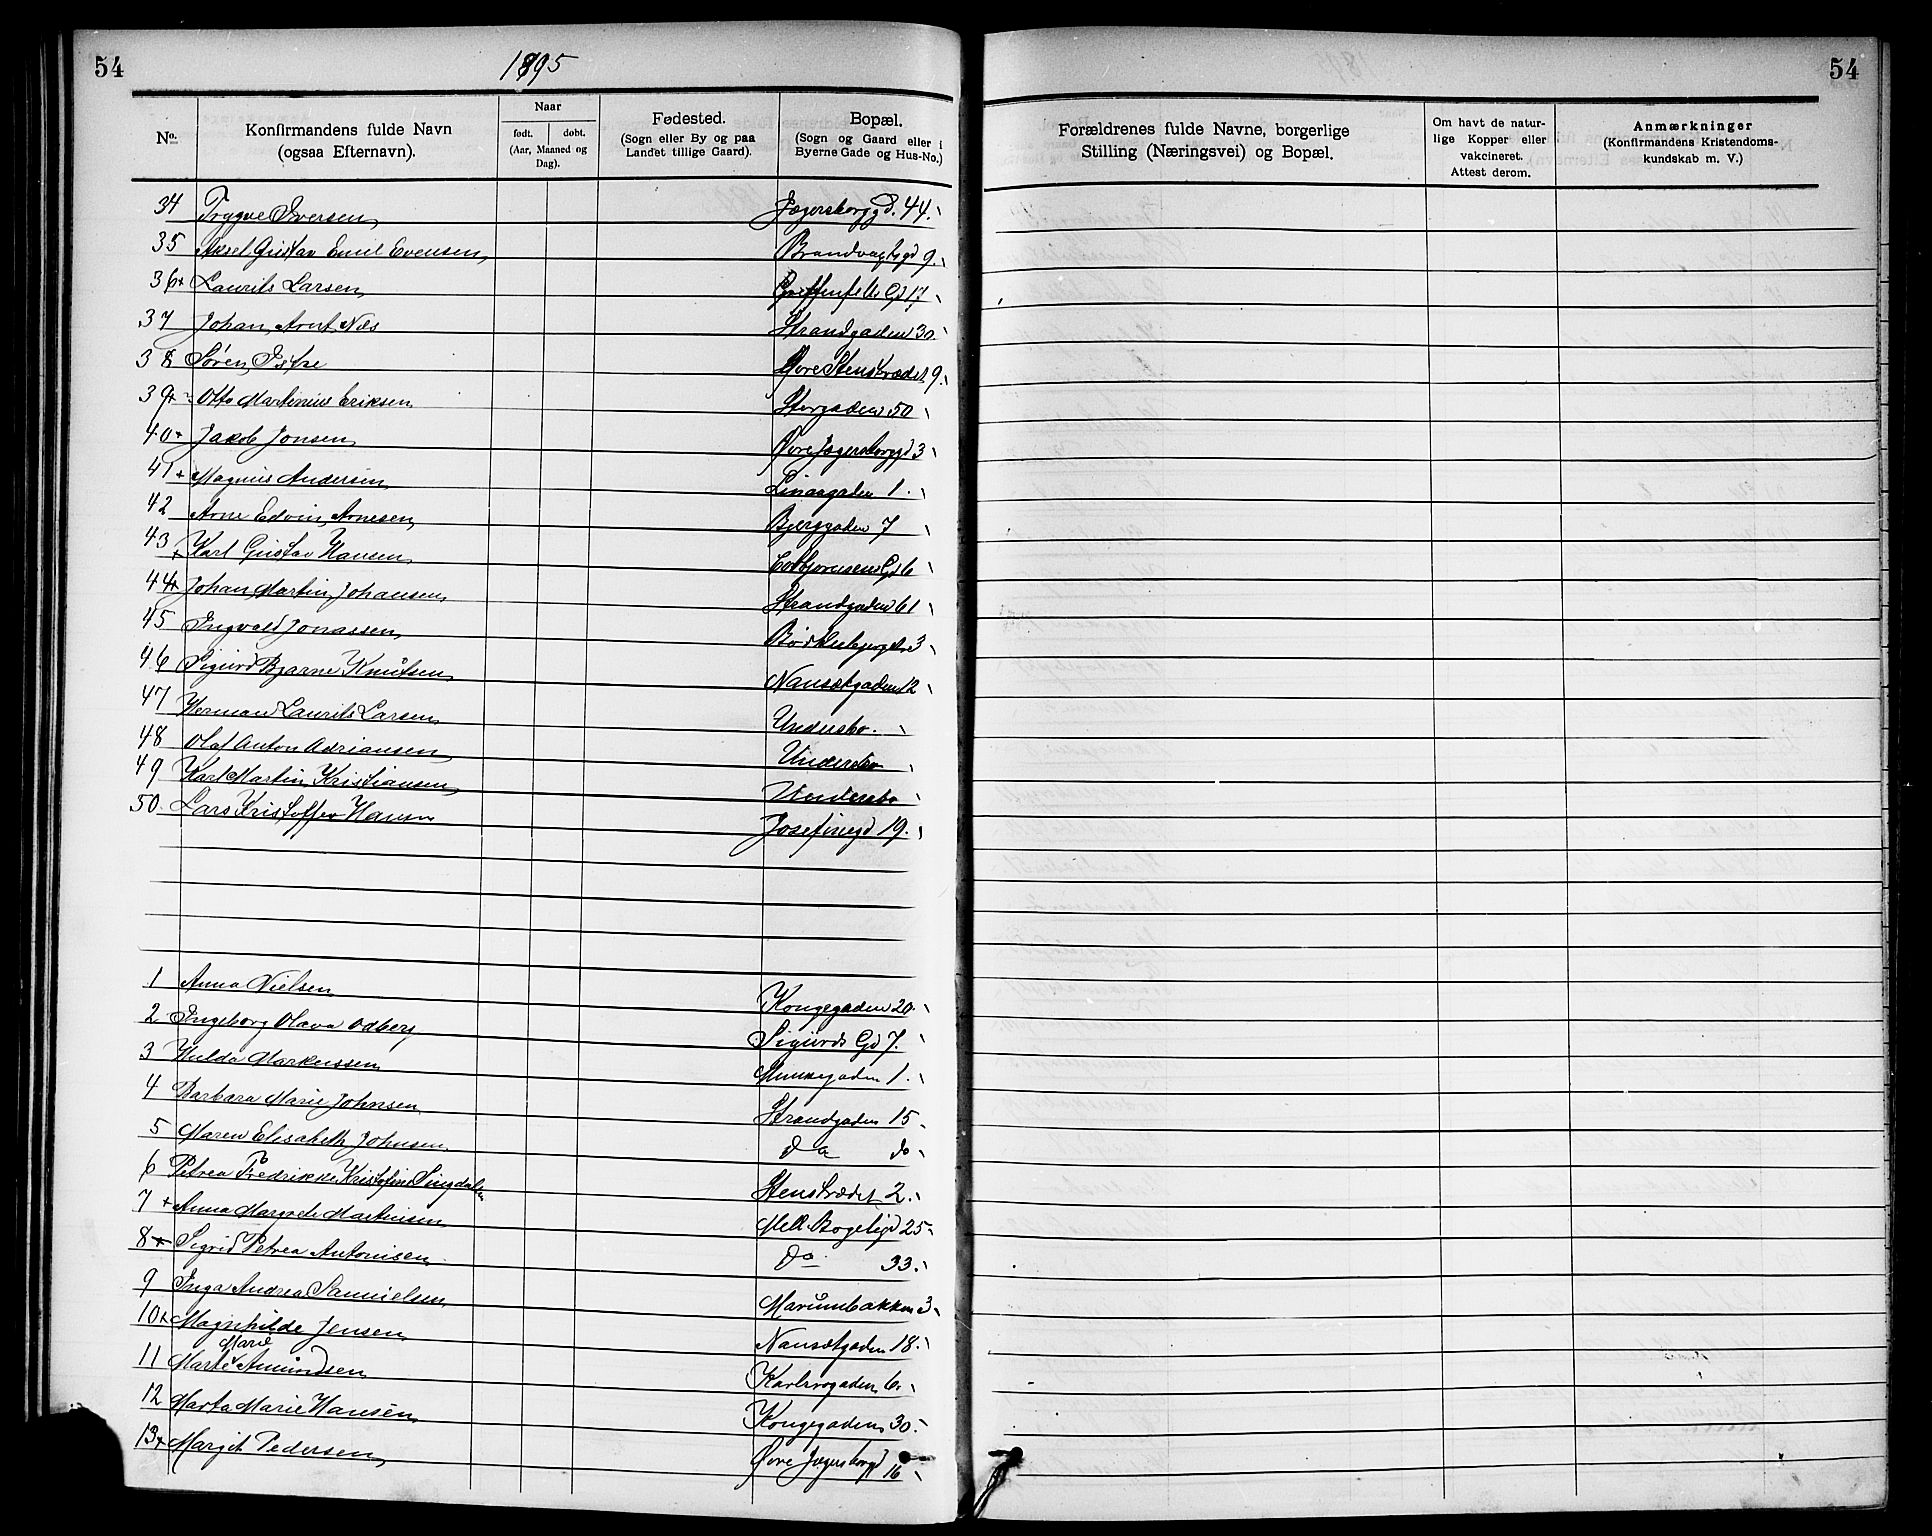 54
1895
54
No.
Konfirmandens fulde Navn
(ogsaa Efternavn).
Naar
født. døbt.
(Aar, Maaned og Dag).
Fødested.
(Sogn eller By og paa
Landet tillige Gaard).
Bopæl.
(Sogn og Gaard eller i
Byerne Gade og Hus-No.)
Forældrenes fulde Navne, borgerlige
Stilling (Næringsvei) og Bopæl.
Om havt de natur-
lige Kopper eller
vakcineret.
Attest derom.
Anmærkninger
(Konfirmandens Kristendoms-
kundskab m. V.)
34 Trygve Iversen Jegersborggd. 44.
35 Aksel Gustav Emil Evensen Brandvagtsgd 9.
36+ Laurits Larsen Griffenfelts Gd 17
37 Johan Arnt Næs Strandgaden 30
38 Søren Istre Øvre Stenstrædet 9.
39+ Otto Martenius Eriksen Storgaden 50
40+ Jakob Jonsen Øvre Jegersborggd 3
41+ Magnus Andersen Linaagaden 1.
42 Arne Edvin Arnesen Bjerggaden 7
43+ Karl Gustav Hansen Colbjørnsens Gd 6
44+ Johan Martin Johansen Strandgaden 61
45 Ingvald Jonassen 3
46 Sigurd Bjarne Knutsen Nansetgaden 12
47 Herman Laurits Larsen Undersbo.
48 Olaf Anton Adriansen Undersbo
49 Karl Martin Kristiansen Undersbo
50. Lars Kristoffer Hansen Josefinegd 19.
1 Anna Nielsen Kongegaden 20.
2 Ingeborg Olava Odberg Sigurds Gd 7.
3 Hulda Markussen Munkegaden 1.
4 Barbara Marie Johnsen Strandgaden 15
5 Maren Elisabeth Johnsen do do
6 Petrea Fredrikke Kristofine Stenstrædet 2.
7+ Anna Margrete Martinsen Mell. Bøgeligd 25
8+ Sigrid Petrea Antonisen do 33.
9 Inga Andrea Samuelsen Marumbakken 3
10+ Magnhilde Jensen Nansetgaden 18.
Marie
11 Marte Amundsen Karlsrogaden 6.
12 Marta Marie Hansen Kongegaden 30.
13+ Margit Pedersen Øvre Jegersborgd 16